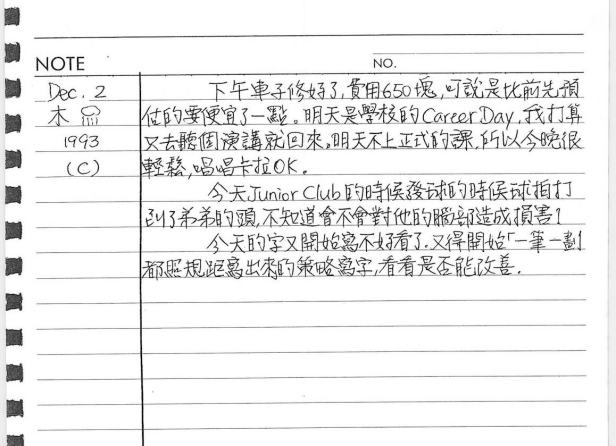 NOTE NO.
Dec. 2 下午車子修好了,費用650塊,可說是比前先預
木 估的要便宜了一點。明天是學校的Career Day,我打算
1993 又去聽個演講就回來,明天不上正式的課,所以今晚很
(C) 輕鬆,唱唱卡拉OK.
今天Junior Club的時候發球的時候球拍打
到了弟弟的頭,不知道會不會對他的腦部造成損害?
今天的字又開始寫不好看了.又得開始「一筆一劃
都照規距寫出來的策略寫字,看看是否能改善.